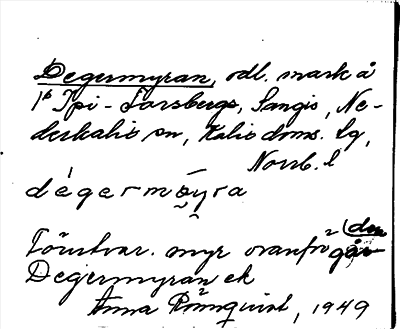 Degermyran, odl. mark å
1/6 Ipi-Larsbergs, Sangis, Ne-
derkalix sn, Kalix doms. lg,
Norrb. l
dégermỳra
Förutvar. myr ovanför går
Degermyran ek
Anna Rönnquist, 1949